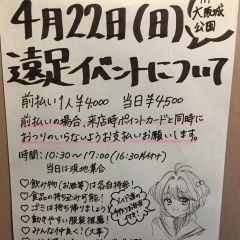 4月22日(日)
in 大阪城公園
遠足イベントについて
前払い1人¥4000 当日¥4500
前払いの場合、来店時ポイントカードと同時に
おつりのいらないようお支払いお願いします。
時間：10:30〜17:00(16:30片付け)
当日は現地集合
♡飲み物(お酒等)は各自持参!
♡食品の持ち込み可能!
♡ゴミは持ち帰りましょう
♡動きやすい服装推奨!
♡みんな仲良く!(大事)